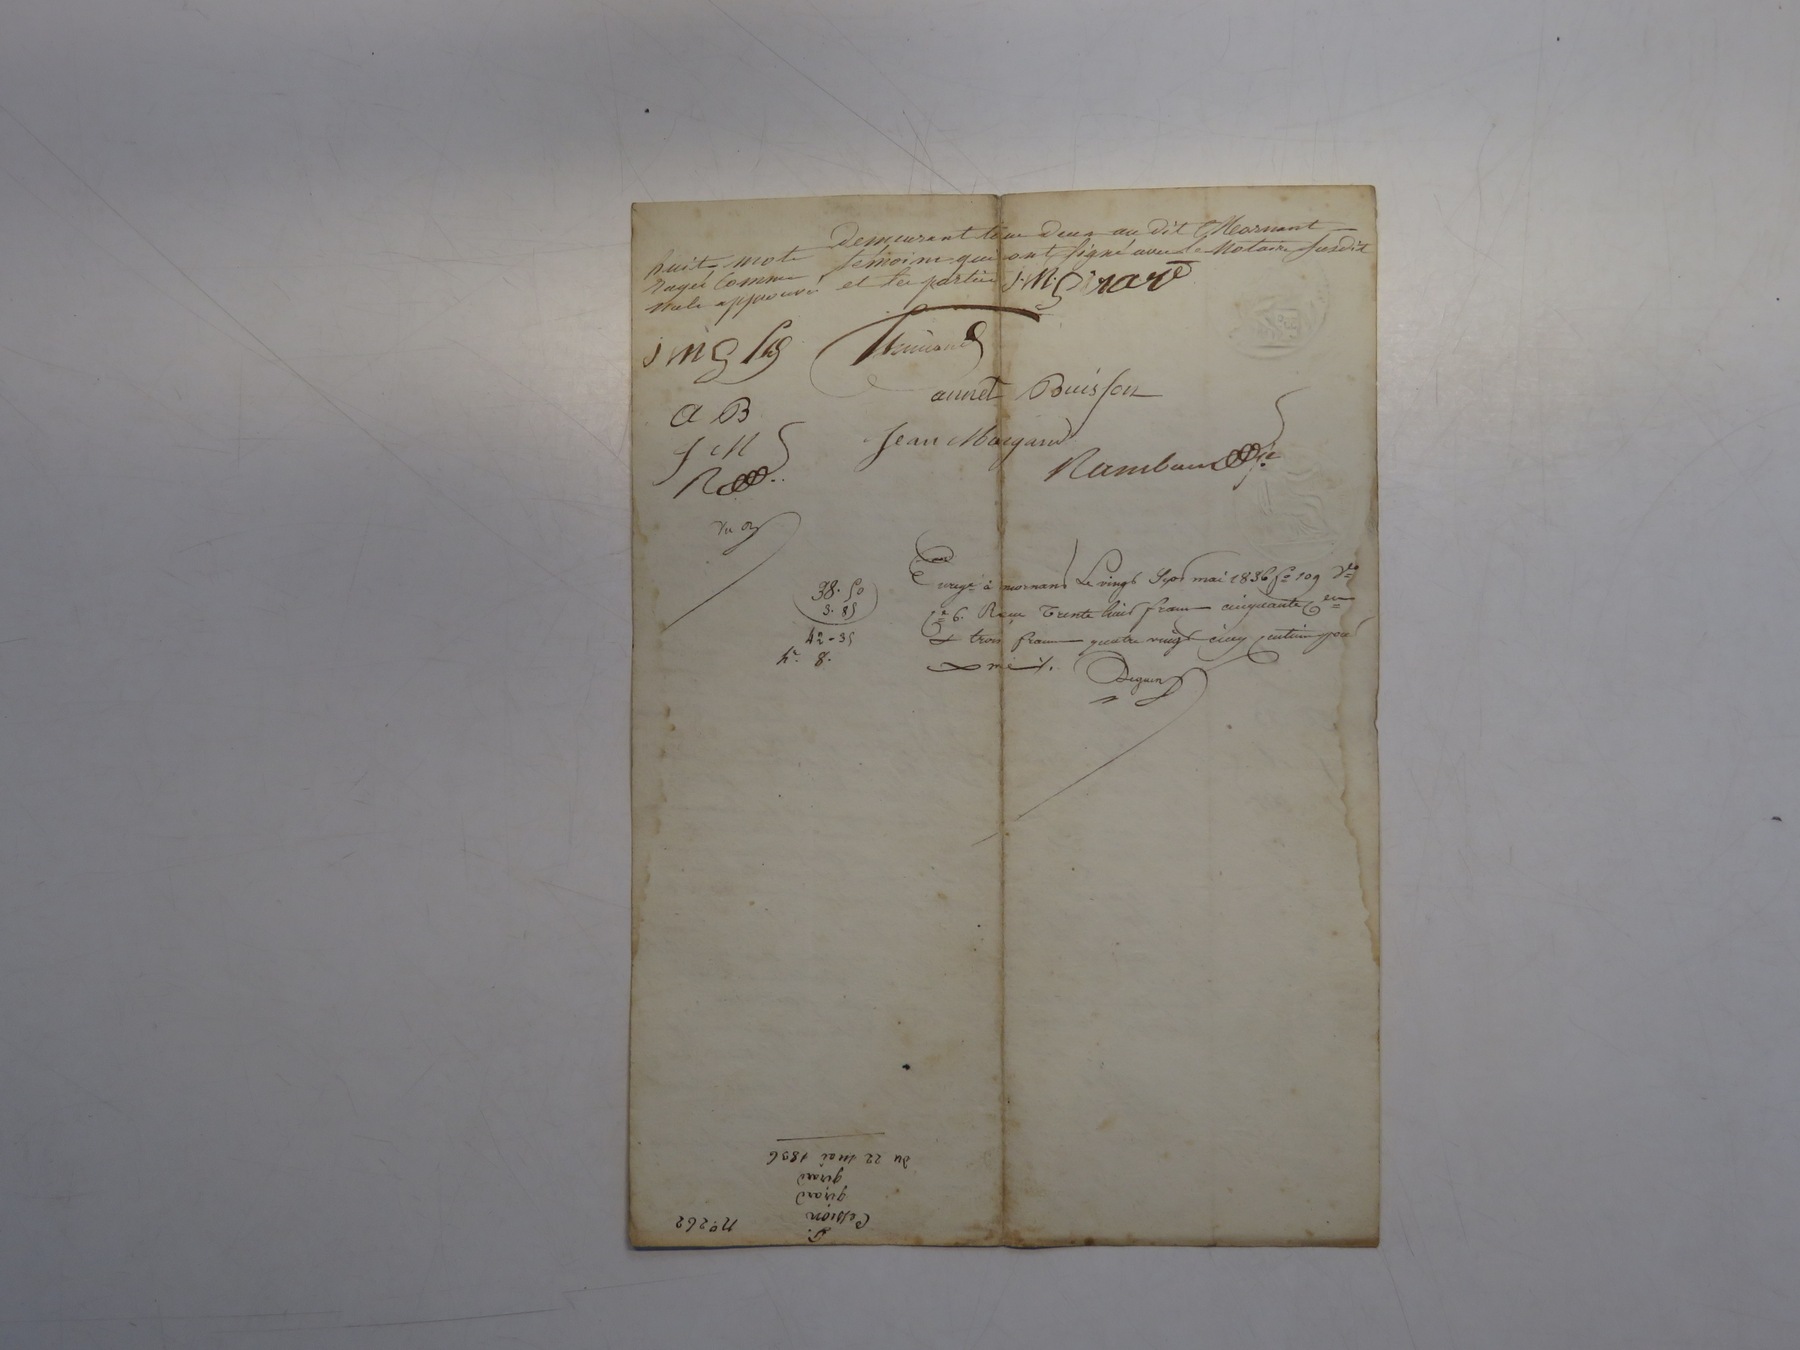 demeurant tous deux au dit Mornant
témoins qui ont signé avec le Notaire susdit
et les parties J. M. Girard
huit mots
rayés comme
nuls approuvé
annet Buisson
a B
Jean Margand
J M
Rambaud
Vu
Enreg. à mornant Le vingt Sept mai 1836 fo 109 Vo
Ce 6. Reçu Trente huit francs cinquante Cen
& trois francs quatre vingt cinq centimes pour
38.50
3.85
42-35
8.
Deguin
no 262
Cession
girard
girard
du 22 mai 1836